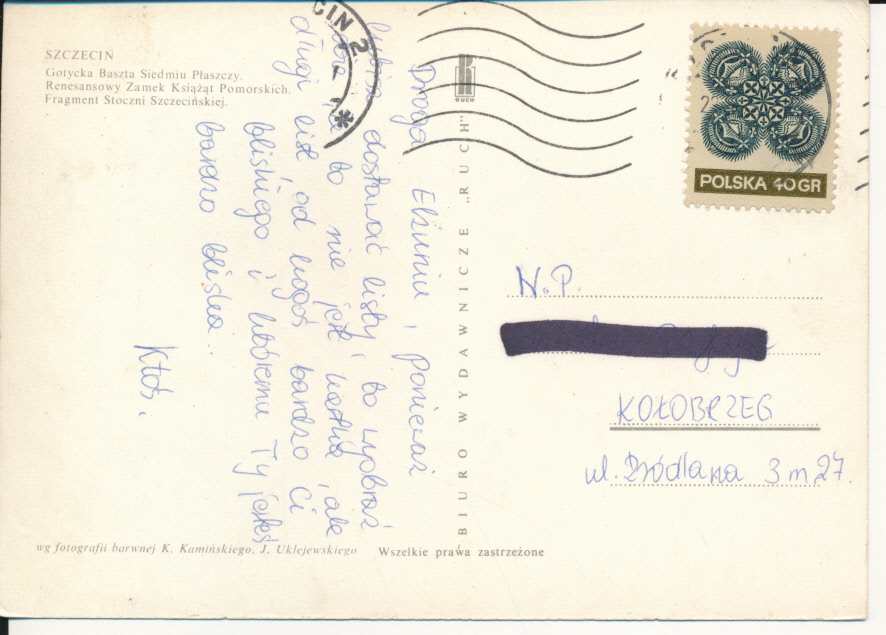 SZCZECIN
Gotycka Baszta Siedmiu Płaszczy.
Renesansowy Zamek Książąt Pomorskich.
Fragment Stoczni Szczecińskiej.
Droga Elżuniu, ponieważ
lubisz dostawać listy, to wyobraź
sobie, że to nie jest kartka, ale
długi list od kogoś bardzo Ci
bliskiego i któremu Ty jesteś
bardzo bliska.
Ktoś.
wg fotografii barwnej K. Kamińskiego, J. Uklejewskiego
Wszelkie prawa zastrzeżone
BIURO WYDAWNICZE „RUCH"
RUCH
CIN 2
POLSKA 40 GR
W.P.
KOŁOBRZEG
ul. Źródlana 3 m 27.